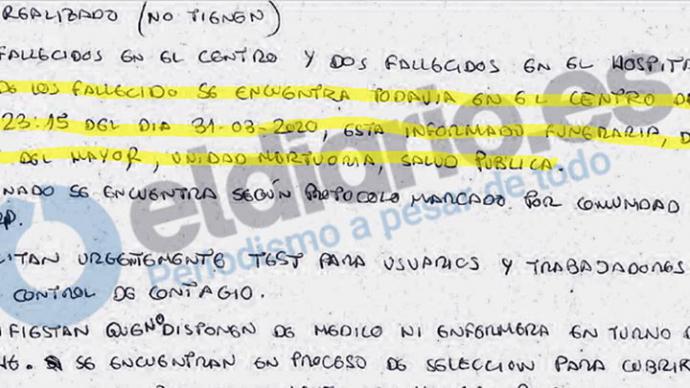 REALIZADO (NO TIENEN)
FALLECIDOS EN EL CENTRO Y DOS FALLECIDOS EN EL HOSPITA
DE LOS FALLECIDO SE ENCUENTRA TODAVIA EN EL CENTRO
23:15 DEL DIA 31-03-2020, ESTA INFORMADO FUNERARIA, D
DEL MAYOR, UNIDAD MORTUORIA, SALUD PUBLICA.
NADO SE ENCUENTRA SEGÚN PROTOCOLO MARCADO POR COMUNIDAD
ITAN URGENTEMENTE TEST PARA USUARIOS Y TRABAJADORES
CONTROL DE CONTAGIO.
IFIESTAN QUE NO DISPONEN DE MEDICO NI ENFERMERA EN TURNO
SE ENCUENTRAN EN PROCESO DE SELECCION PARA CUBRIR
eldiario.es
Periodismo a pesar de todo